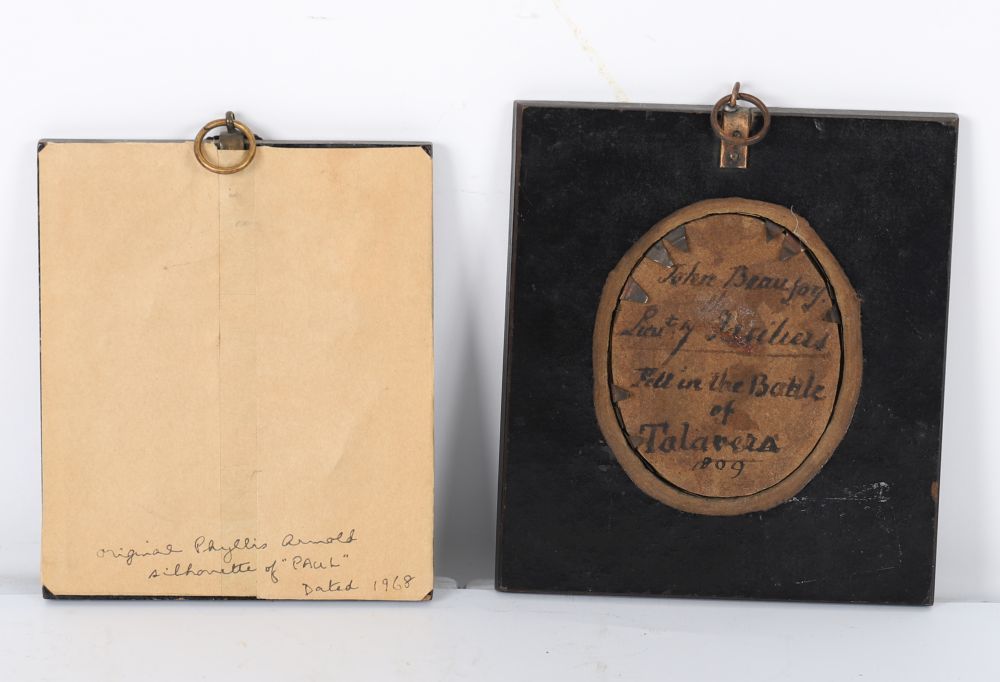 original Phyllis Arnold
silhouette of "PAUL"
Dated 1968
John Beaufoy
Lieut 7 Fusiliers
Fell in the Battle
of
Talavera
1809